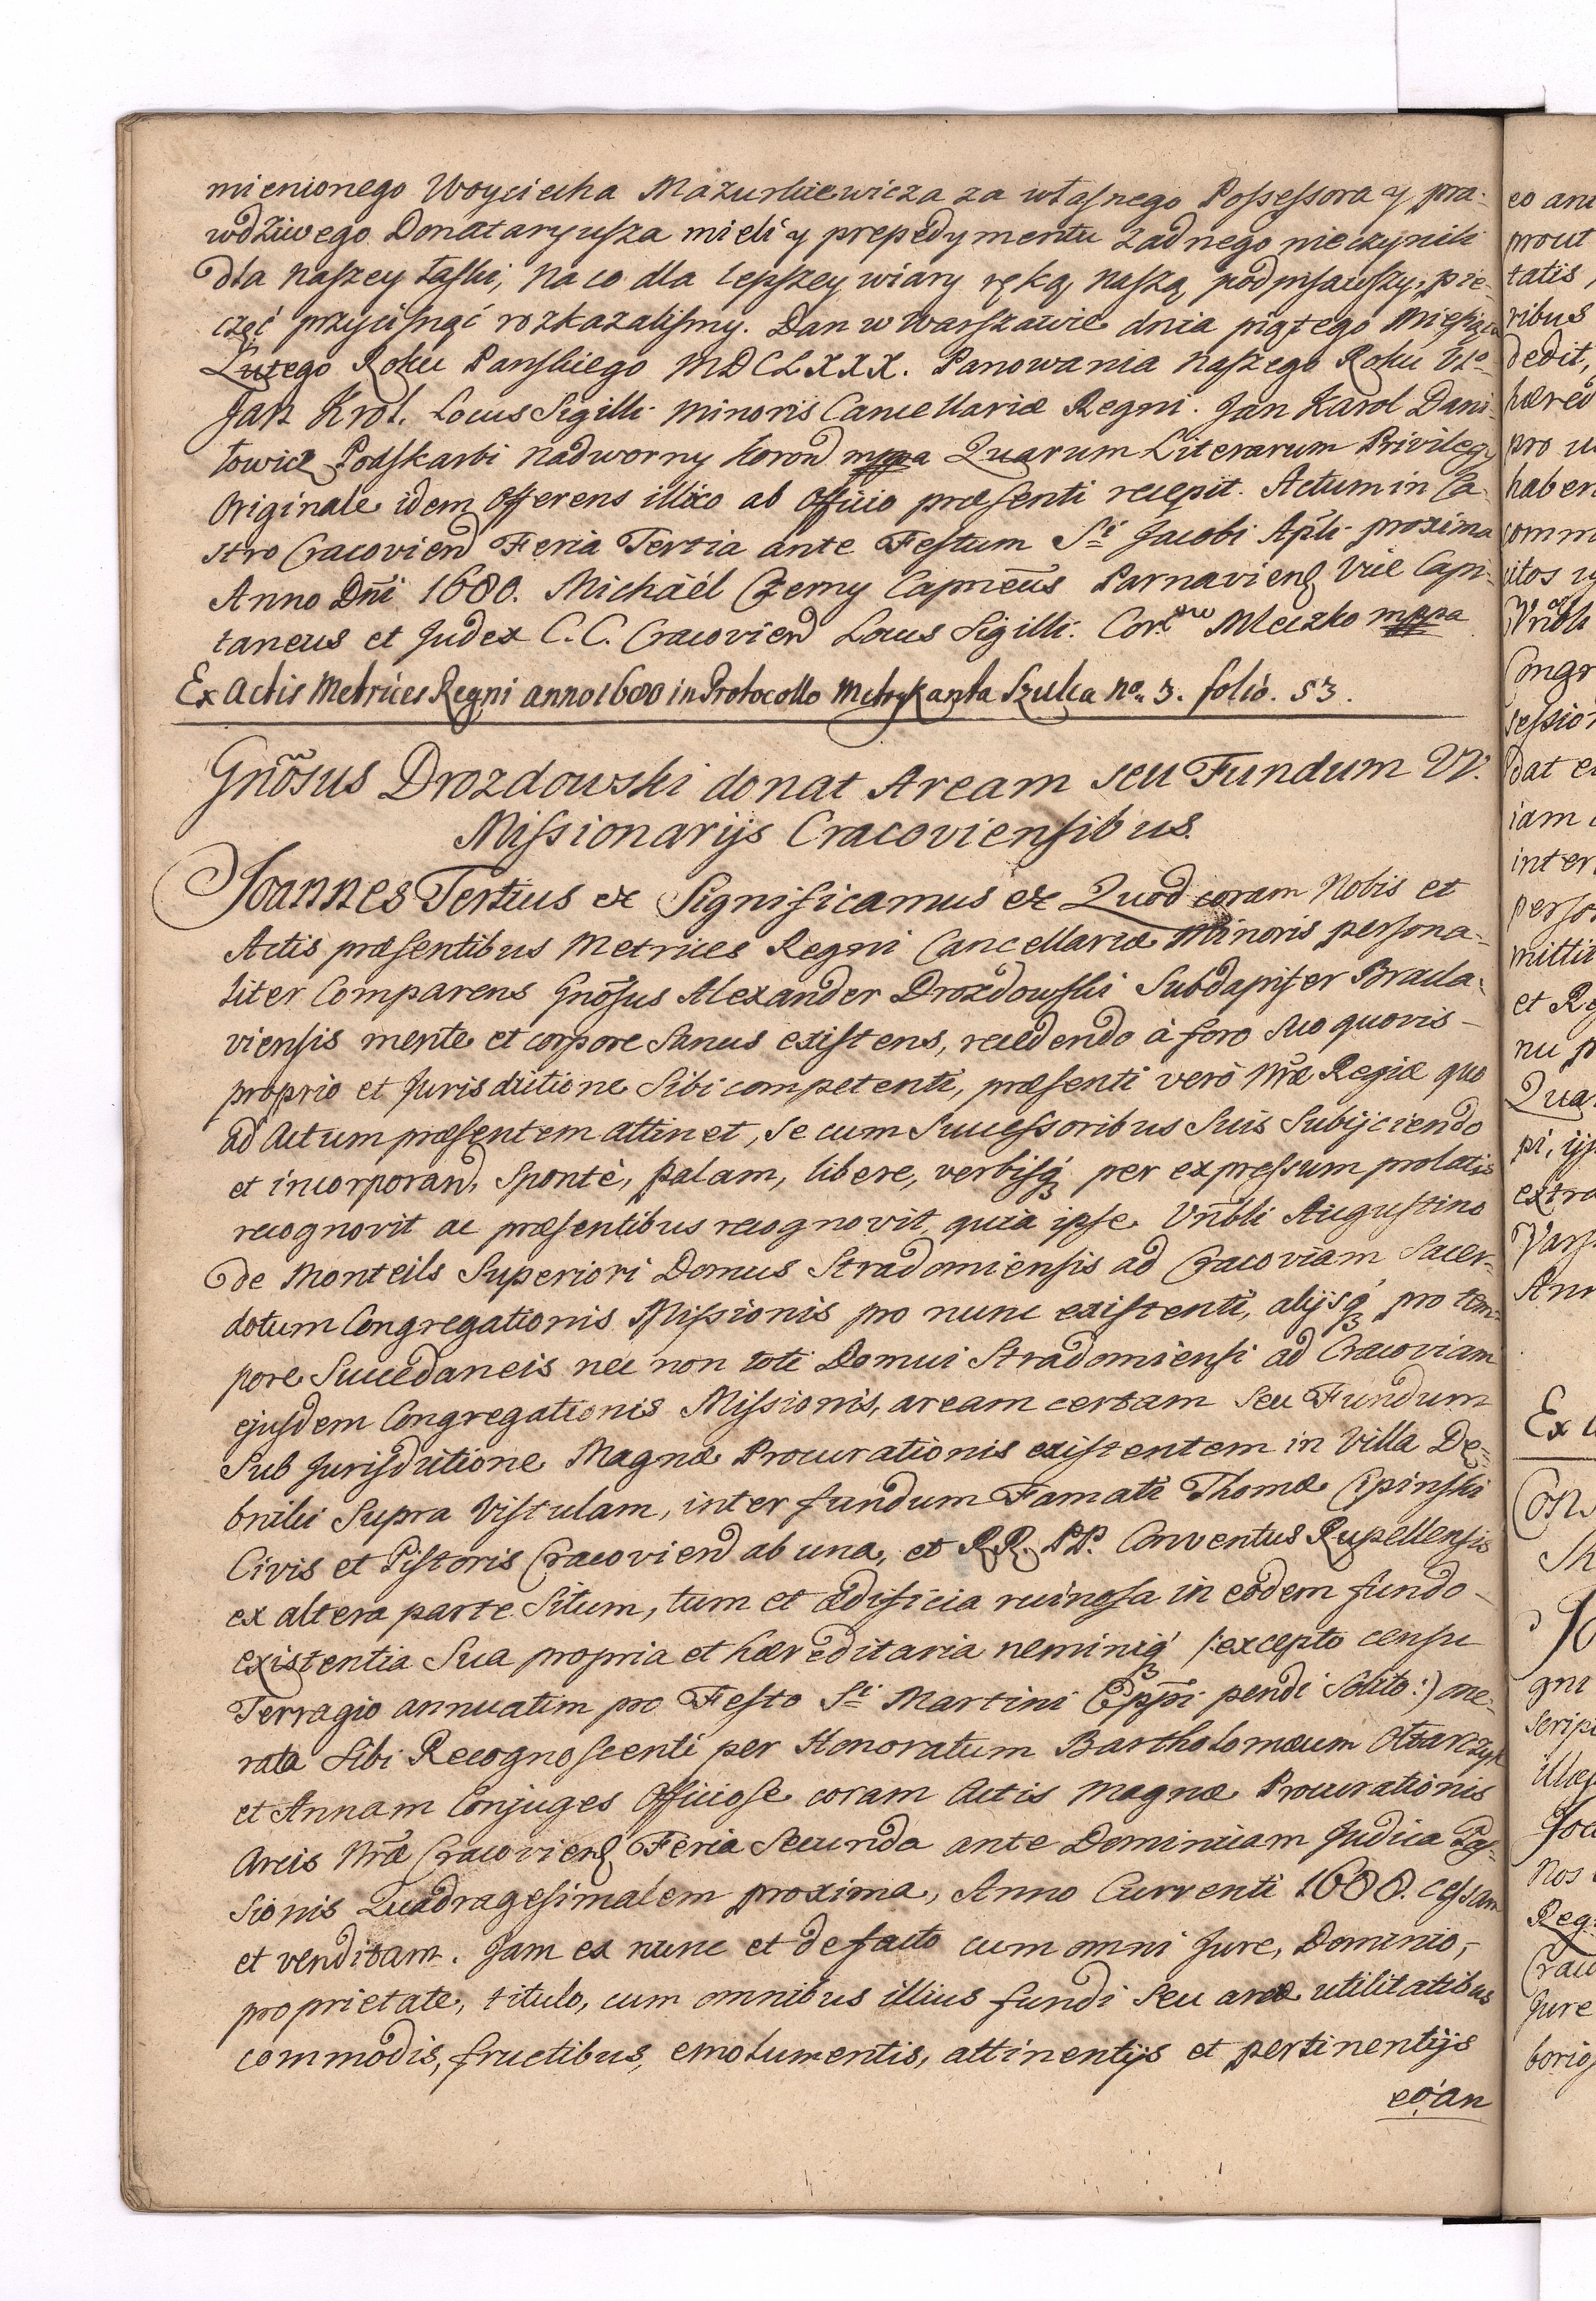 mienionego Woyciecha Mazurkiewicza za własnego Possessora y pra-
wdziwego Donataryusza mieli y prepedymentu żadnego nieczynili
dla naszey łaski, na co dla lepszey wiary ręką naszą podpisawszy, pie-
częć przycisnąć rozkazalismy. Dan w Warszawie dnia piątego Miesiąca
Lutego Roku Panskiego MDCLXXX. Panowania naszego Roku
Jan Krol. Locus Sigilli minoris Cancellariæ Regni. Jan Karol Dani-
łowicz Podskarbi nadworny koron mppa Quarum Literarum Privilegy
Originale idem Offerens illico ab Officio præsenti recepit. Actum in Ca-
stro Cracovien Feria Tertia ante Festum Sti Jacobi Apli proxima
Anno Dni 1680. Michaël Czerny Capneus Parnavien Vice Capi-
taneus et Judex C. C. Cracovien Locus Sigilli. Mleczko mppa
Ex Actis Metrices Regni anno 1680 in Protocollo Metrykanta Szulca No. 3. folio. 53.
Gnosus Drozdowski donat Aream seu Fundum VV.
Missionarijs Cracoviensibus.
Joannes Tertius & Significamus & Quod coram Nobis et
Actis præsentibus Metrices Regni Cancellariæ Minoris persona-
liter Comparens Gnosus Alexander Drozdowski Subdapifer Bracla-
viensis mente et corpore sanus existens, recedendo à foro suo quovis
proprio et Jurisdictione sibi competenti, præsenti verò Nræ Regiæ quo
ad Actum præsentem attinet, se cum Successoribus Suis Subijciendo
et incorporan, Spontè, palam, libere, verbisq per expressum prolatis
recognovit ac præsentibus recognovit, quia ipse Vnbli Augustino
de Monteils Superiori Domus Stradomiensis ad Cracoviam Sacer-
dotum Congregationis Missionis pro nunc existenti, alijsq pro tem-
pore Succedaneis nec non toti Domui Stradomiensi ad Cracoviam
ejusdem Congregationis Missionis, aream certam seu Fundum
Sub Jurisdictione Magnæ Procurationis existentem in Villa Dę-
bniki Supra Vistulam, inter fundum Famati Thomæ Cipinski
Civis et Pistoris Cracovien ab una, et RR. PP. Conventus Rupellensis
ex altera parte Situm, tum et ædificia ruinosa in eodem fundo
existentia Sua propria et hæreditaria neminiq /:excepto censu
Terragio annuatim pro Festo Sti Martini Eppi pendi Solito:) one-
rata Sibi Recognoscenti per Honoratum Bartholomæum
et Annam Conjuges Officiose coram Actis Magnæ Procurationis
Arcis Nræ Cracovien Feria Secunda ante Dominicam Judica Pas-
sionis Quadragesimalem proxima, Anno Currenti 1680. Cessam
et venditam. Jam ex nunc et de facto cum omni Jure, Dominio,
proprietate, titulo, cum omnibus illius fundi seu areæ utilitatibus
commodis, fructibus, emolumentis, attinentijs et pertinentijs
eo, an